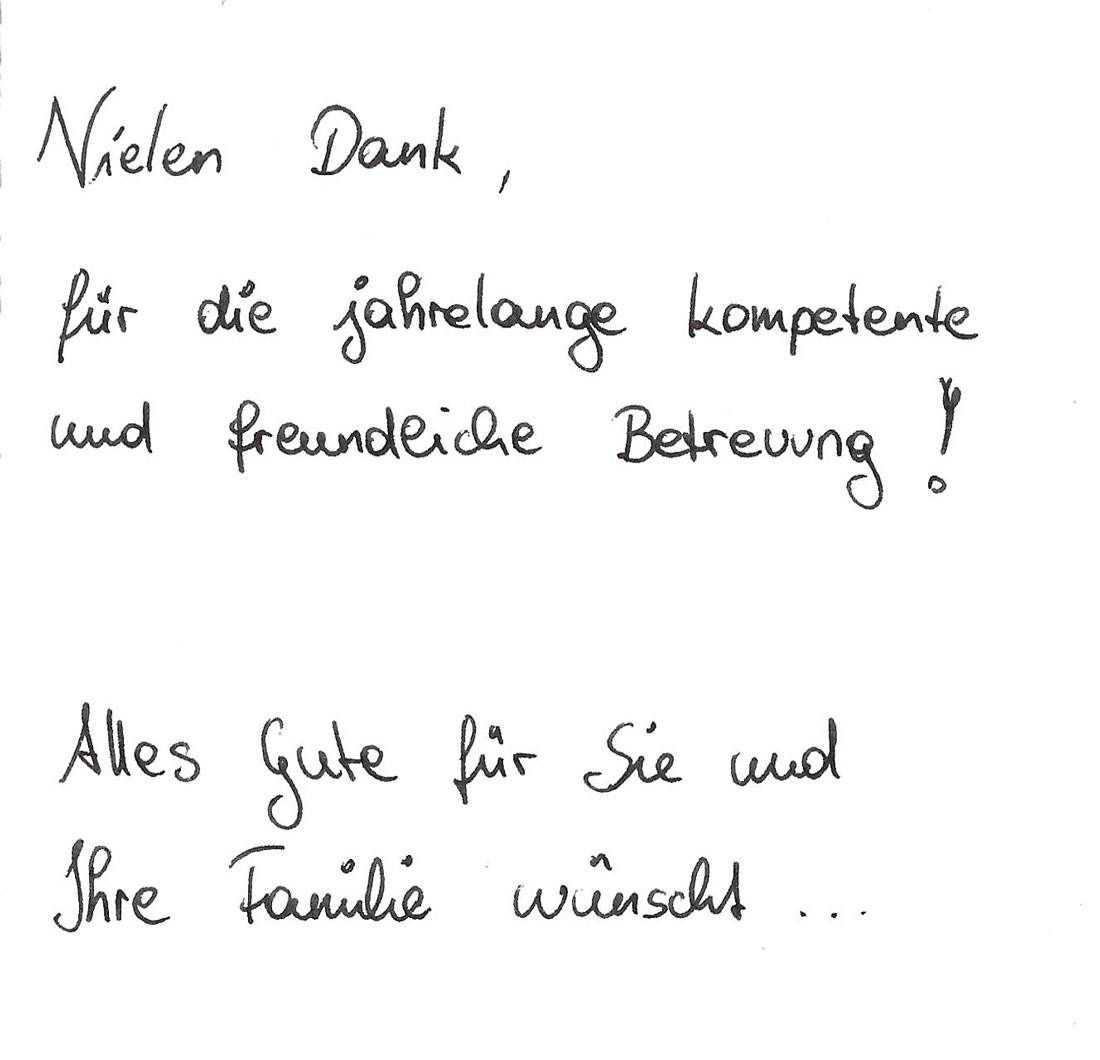 Vielen Dank,
für die jahrelange kompetente
und freundliche Betreuung!
Alles Gute für Sie und
Ihre Familie wünscht ...